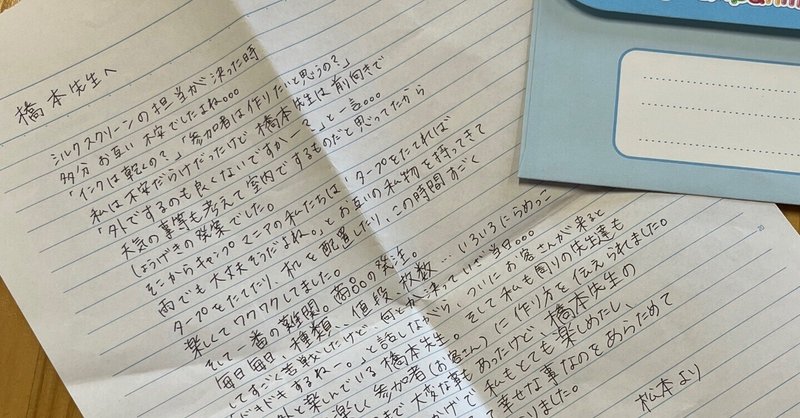 橋本先生へ
シルクスクリーンの担当が決った時
多分お互い不安でしたよね。。。
「インクは乾くの?」「参加者は作りたいと思うの?」
私は不安だらけだったけど橋本先生は前向きで
「外でするのも良くないですかー?」と一言。。。
天気の事等も考えて室内でするものだと思ってたから
しょうげきの発案でした。
そこからキャンプマニアの私たちは「タープをたてれば
雨でも大丈夫そうだよね。」とお互いの私物を持ってきて
タープをたてたり、机を配置したり、この時間すごく
楽しくてワクワクしてました。
そして一番の難関。商品の発注。
毎日毎日、種類、値段、枚数…いろいろにらめっこ
してすごく苦戦したけど、何とか決っていざ当日。。。
ドキドキするねー。」と話しながら、ついにお客さんが来ると
外と楽しんでいる橋本先生。そして私も周りの先生達も
楽しく参加者(お客さん)に作り方を伝えられました。
まで大変な事もあったけど、橋本先生の
かげで私もとても楽しめたし、
幸せな事なのをあらためて
りました。
松本より
20